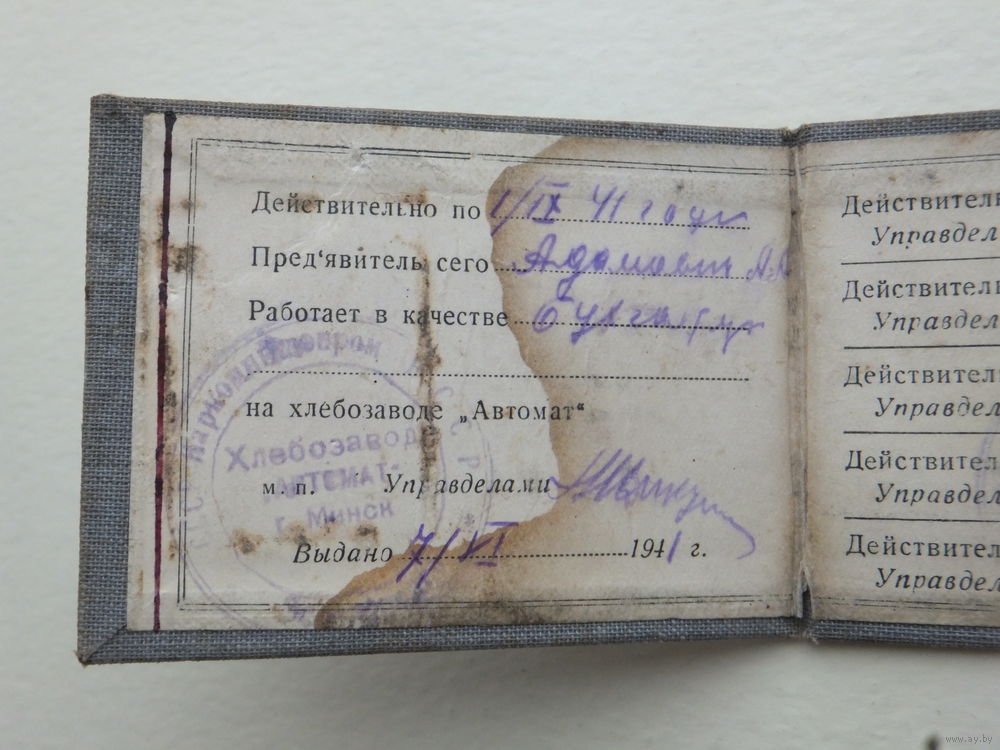 Действительно по 1/IX 41 года
Пред‘явитель сего Адамович А.А
Работает в качестве бухгалтера
на хлебозаводе „Автомат“
м. п. Управделами
Выдано 7/VI 1941 г.
Наркомпищепром БССР
Хлебозавод
"АВТОМАТ"
г. Минск
Действительн
Управдел
Действительн
Управдел
Действител
Управдел
Действител
Управдел
Действител
Управдел
www.ay.by